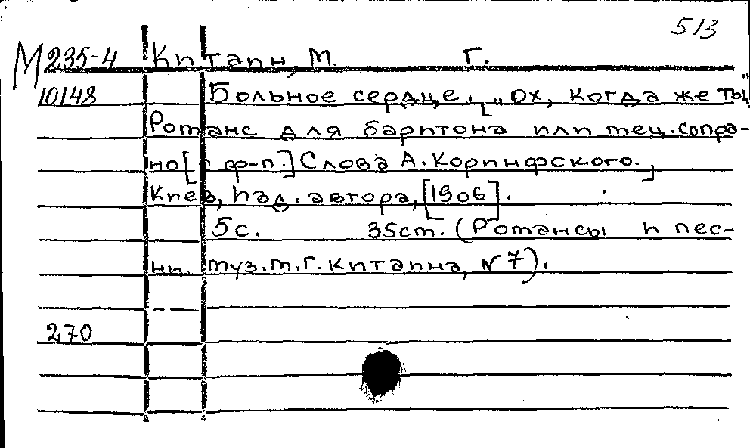 513
М 235-4 Китаин, М. Г.
10148 Больное сердце. „Ох, когда же ты"
Романс для баритона или мец.сопра-
но [с ф-п.] Слова А.Коринфского.
Киев, Изд. автора, [1906].
5с. 35см. (Романсы и пес-
ни. Муз. М.Г. Китаина, №7).
270